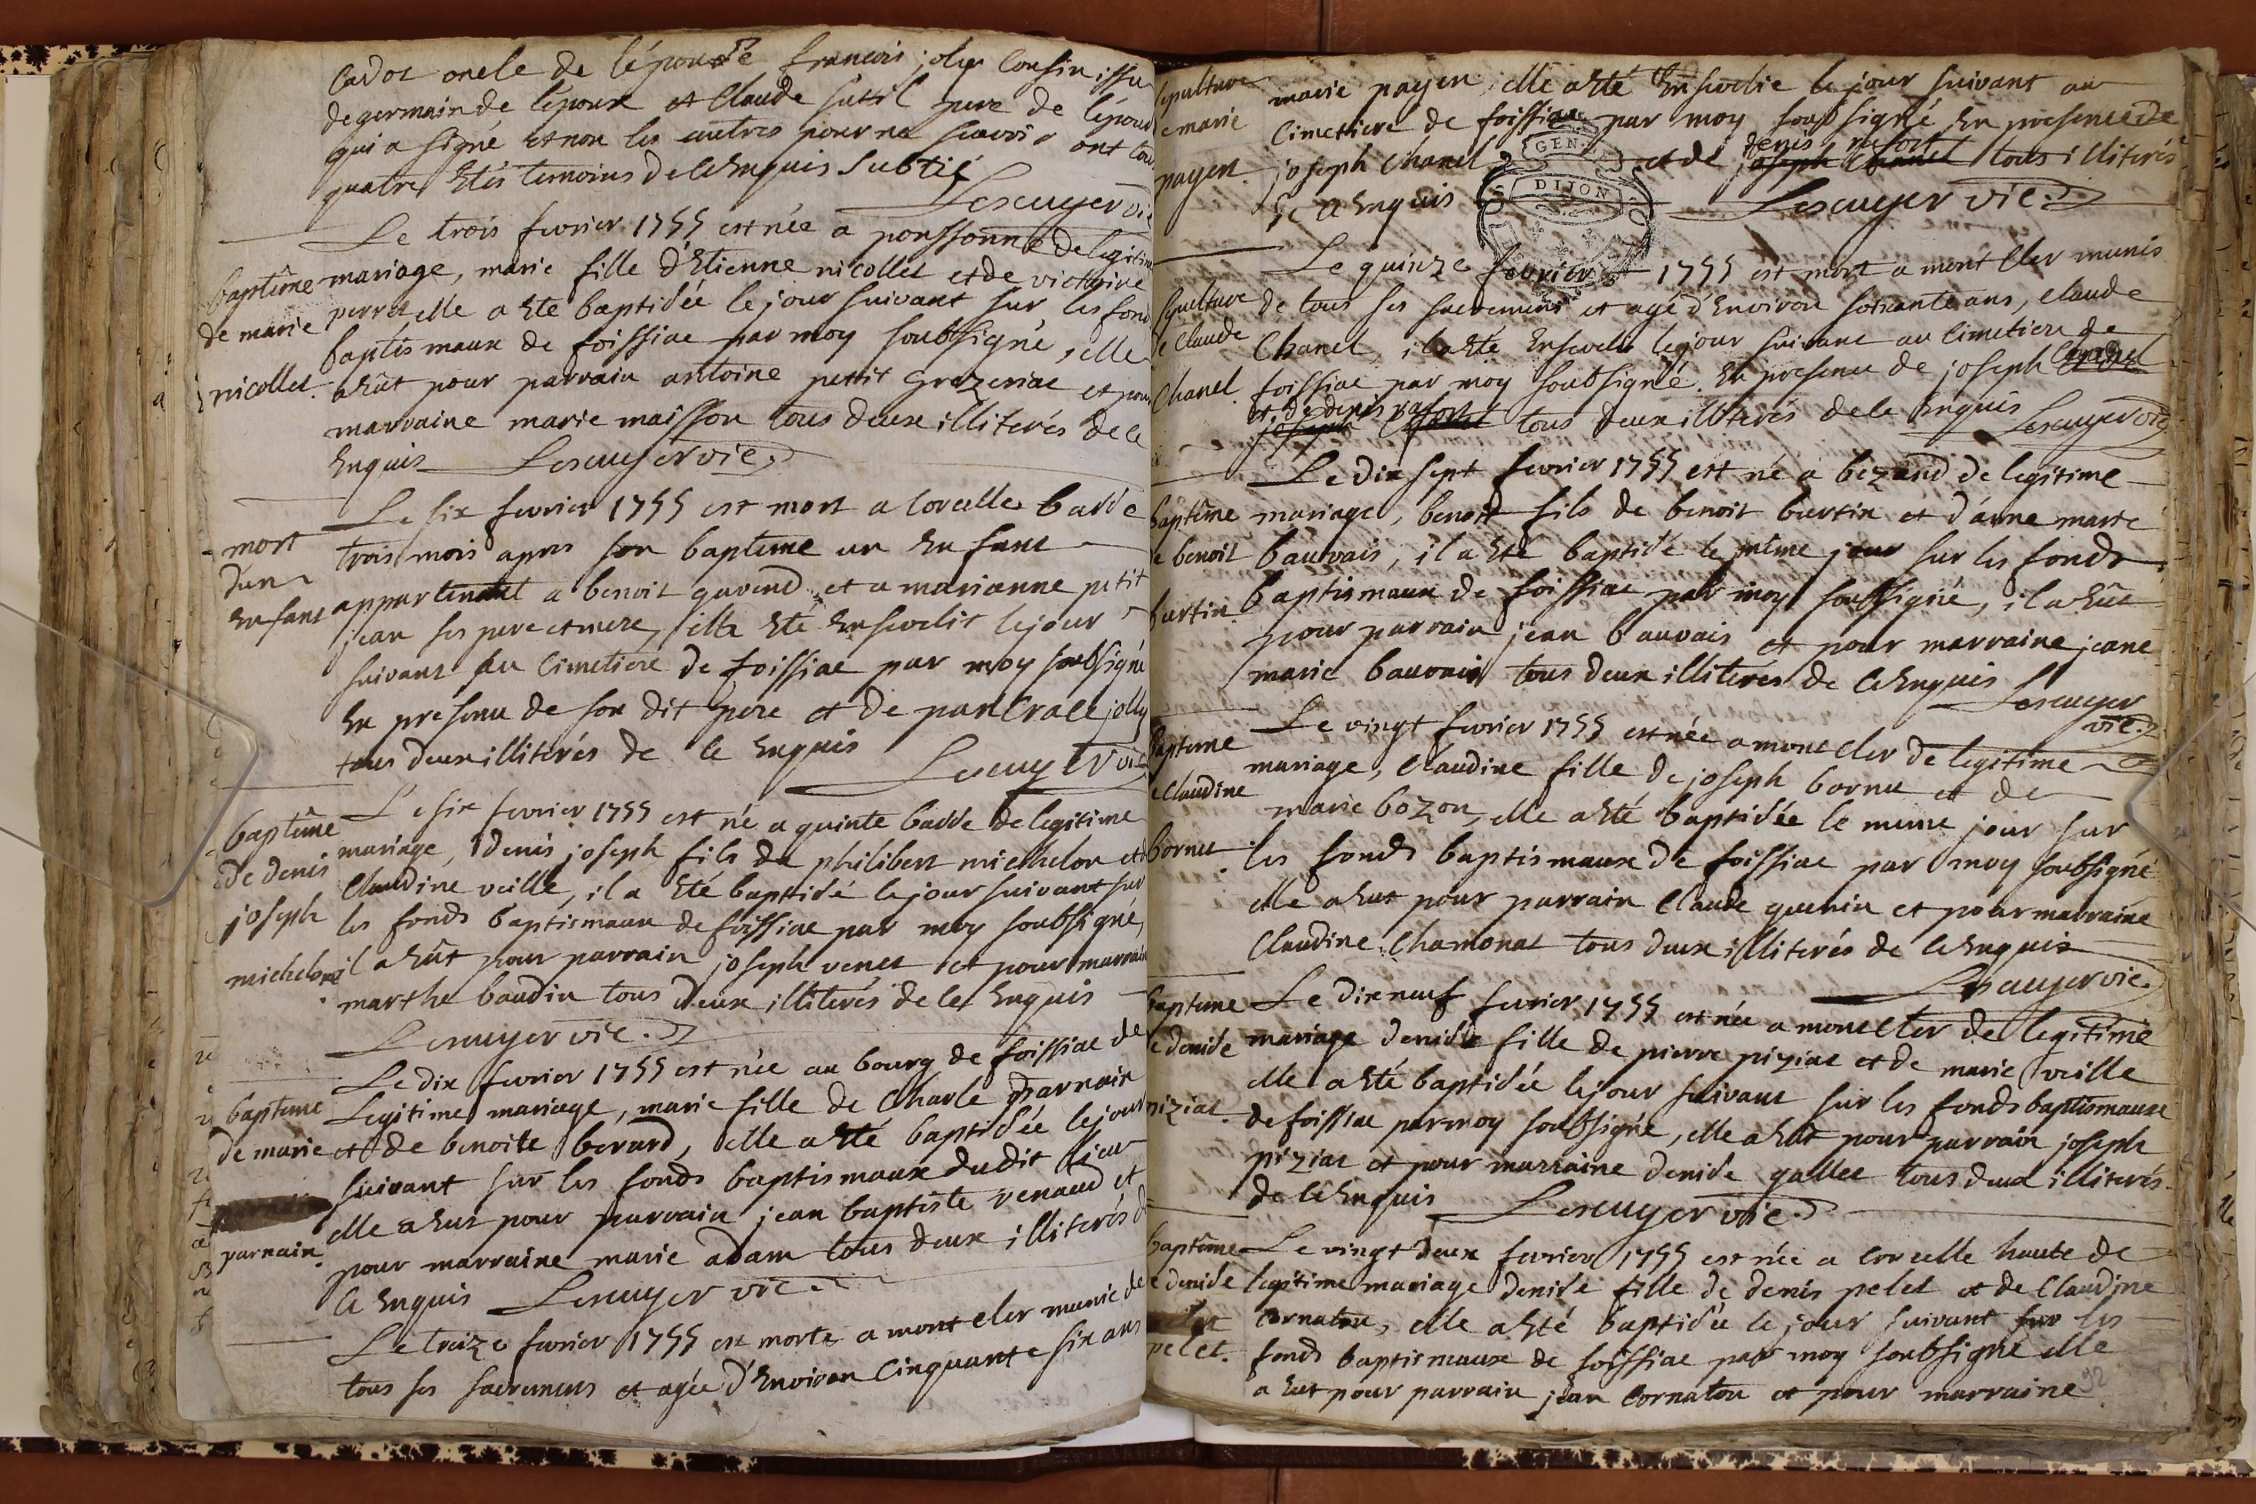 Cadot oncle de l'épouse francois joly Cousin issu
de germain de l'époux et Claude suttil pere de l'épouse
qui a signé et non les autres pour ne scavoir ont tous
quatre étés temoins de ce Enquis Subtil
Lescuyer vic
Le trois fevrier 1755 est née a ponssonne de legitime
baptême mariage, marie fille d'Etienne nicollet et de victoire
de marie perret elle a Eté baptisée le jour suivant sur les fonds
baptismaux de foissiac par moy soubsigné, elle
nicollet. a hût pour parrain antoine petit Grozeriac et pour
marraine marie maisson tous deux illiterés de ce
Enquis Lescuyer vic.
Le six fevrier 1755 est mort a Corcelle basse
mort trois mois apres son baptême un Enfant
d'un
Enfant appartenant a benoit gavend et a marianne petit
jean ses pere et mere, il a Eté Ensevelit le jour
suivant au Cimetiere de foissiac par moy soubsigné
En presence de son dit pere et de panCrace jolly
tous deux illiterés de ce Enquis
Lescuyer vic
Le six fevrier 1755 est né a quinte basse de legitime
baptême mariage, Denis joseph fils de philibert michelon et de
de denis Claudine veille, il a Eté baptisé le jour suivant sur
joseph les fonds baptismaux de foissiac par moy soubsigné,
michelon il a hût pour parrain joseph venet et pour marraine
marthe baudin tous deux illiterés de ce Enquis
Lescuyer vic.
Le dix fevrier 1755 est née au bourg de foissiac de
bapteme Legitime mariage, marie fille de Charle parnain
de marie et de benoite berard, elle a Eté baptisée le jour
suivant sur les fonds baptismaux dudit lieu
elle a hut pour parrain jean baptiste renaud et
parnain. pour marraine marie adam tous deux illiterés de
Ce Enquis Lescuyer vic.
Le treize fevrier 1755 est morte a mont cler munie de
tous ses sacremens et agée d'Environ Cinquante six ans
sepulture marie payen, elle a Eté Ensevelie le jour suivant au
de marie Cimettiere de foissiac par moy soubsigné En presence de
denis rafort
payen. joseph Chanel et de joseph Chanel tous illiterés
de ce Enquis Lescuyer vic.
GEN
DIJON
Le quinze fevrier 1755 est mort a mont Cler munis
sepulture de tous ses sacremens et agé d'Environ soixante ans, Claude
de Claude Chanel, il a Eté Ensevelit le jour suivant au Cimetiere de
Chanel. foissiac par moy soubsigné. En presence de joseph Chanel
et de denis rafort
joseph Chanel tous deux illiterés de ce Enquis Lescuyer vic
Le dix sept fevrier 1755 est né a bezand de legitime
baptême mariage, benoit fils de benoit burtin et d'anne marie
de benoit bauvais, il a Eté baptisé le même jour sur les fonds
burtin. baptismaux de foissiac par moy soubsigné, il a hût
pour parrain jean bauvais et pour marraine jeane
marie bauvais tous deux illiterés de ce Enquis
Lescuyer
vic.
Le vingt fevrier 1755 est née a mont Cler de legitime
bapteme mariage, Claudine fille de joseph bornu et de
de Claudine marie bozon, elle a Eté baptisée le meme jour sur
bornu les fonds baptismaux de foissiac par moy soubsigné
elle a hut pour parrain Claude guenin et pour marraine
Claudine Chamonat tous deux illiterés de ce Enquis
Lescuyer vic.
bapteme Le dix neuf fevrier 1755 est née a mont Cler de legitime
de denise mariage denise fille de pierre piziat et de marie veille
elle a Eté baptisée le jour suivant sur les fonds baptismaux
piziat. de foissiac par moy soubsigné, elle a hut pour parrain joseph
piziat et pour marraine denise gallet tous deux illiterés
de ce Enquis Lescuyer vic.
baptême Le vingt deux fevrier 1755 est née a Corcelle haute de
de denise legitime mariage denise fille de denis pelet et de Claudine
Cornaton, elle a Eté baptisée le jour suivant sur les
pelet. fonds baptismaux de foissiac par moy soubsigné elle
a hut pour parrain jean Cornaton et pour marraine
92